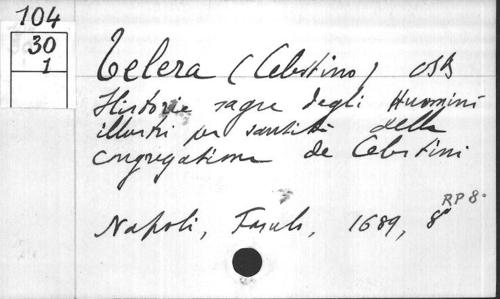 104
30
1
Telera (Celestino) OSB
Historie sagre degli Huomini
illustri per santità della
congregatione de Celestini
Napoli, Fasulo, 1689, 8°
RP 8.